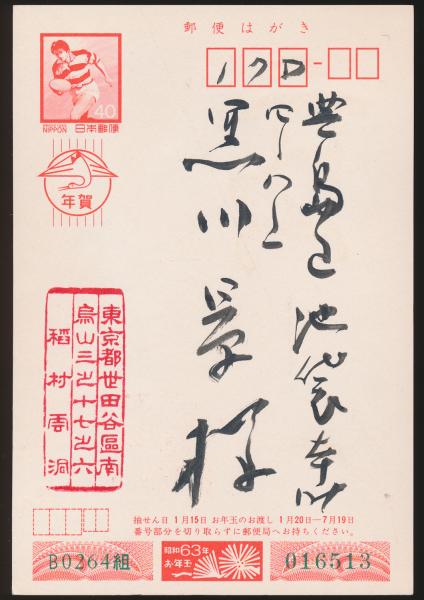 郵便はがき
170
40
NIPPON 日本郵便
年賀
豊島区池袋本町
黒川 章 様
東京都世田谷區南
烏山三之十七之六
稻村雲洞
抽せん日 1月15日 お年玉のお渡し 1月20日―7月19日
番号部分を切り取らずに郵便局へお持ちください。
B0264組
昭和63年
お年玉
016513